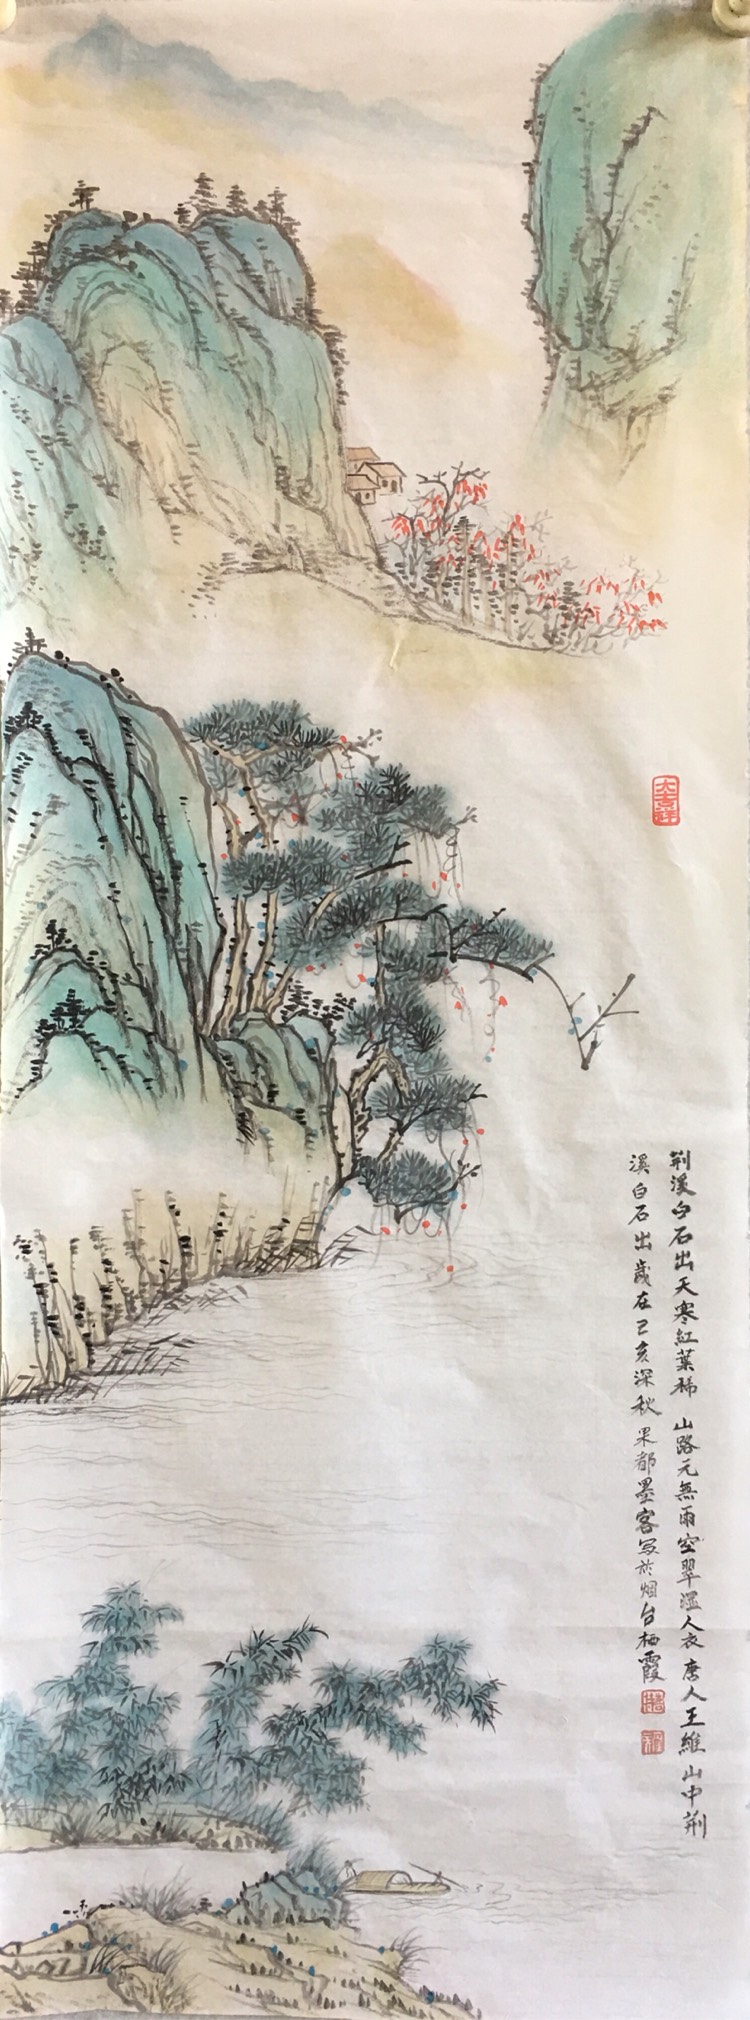 荆溪白石出天寒紅葉稀 山路元無雨空翠湿人衣 唐人王維山中荆
溪白石出歲在己亥深秋 果都墨客写於烟台栖霞
大吉祥